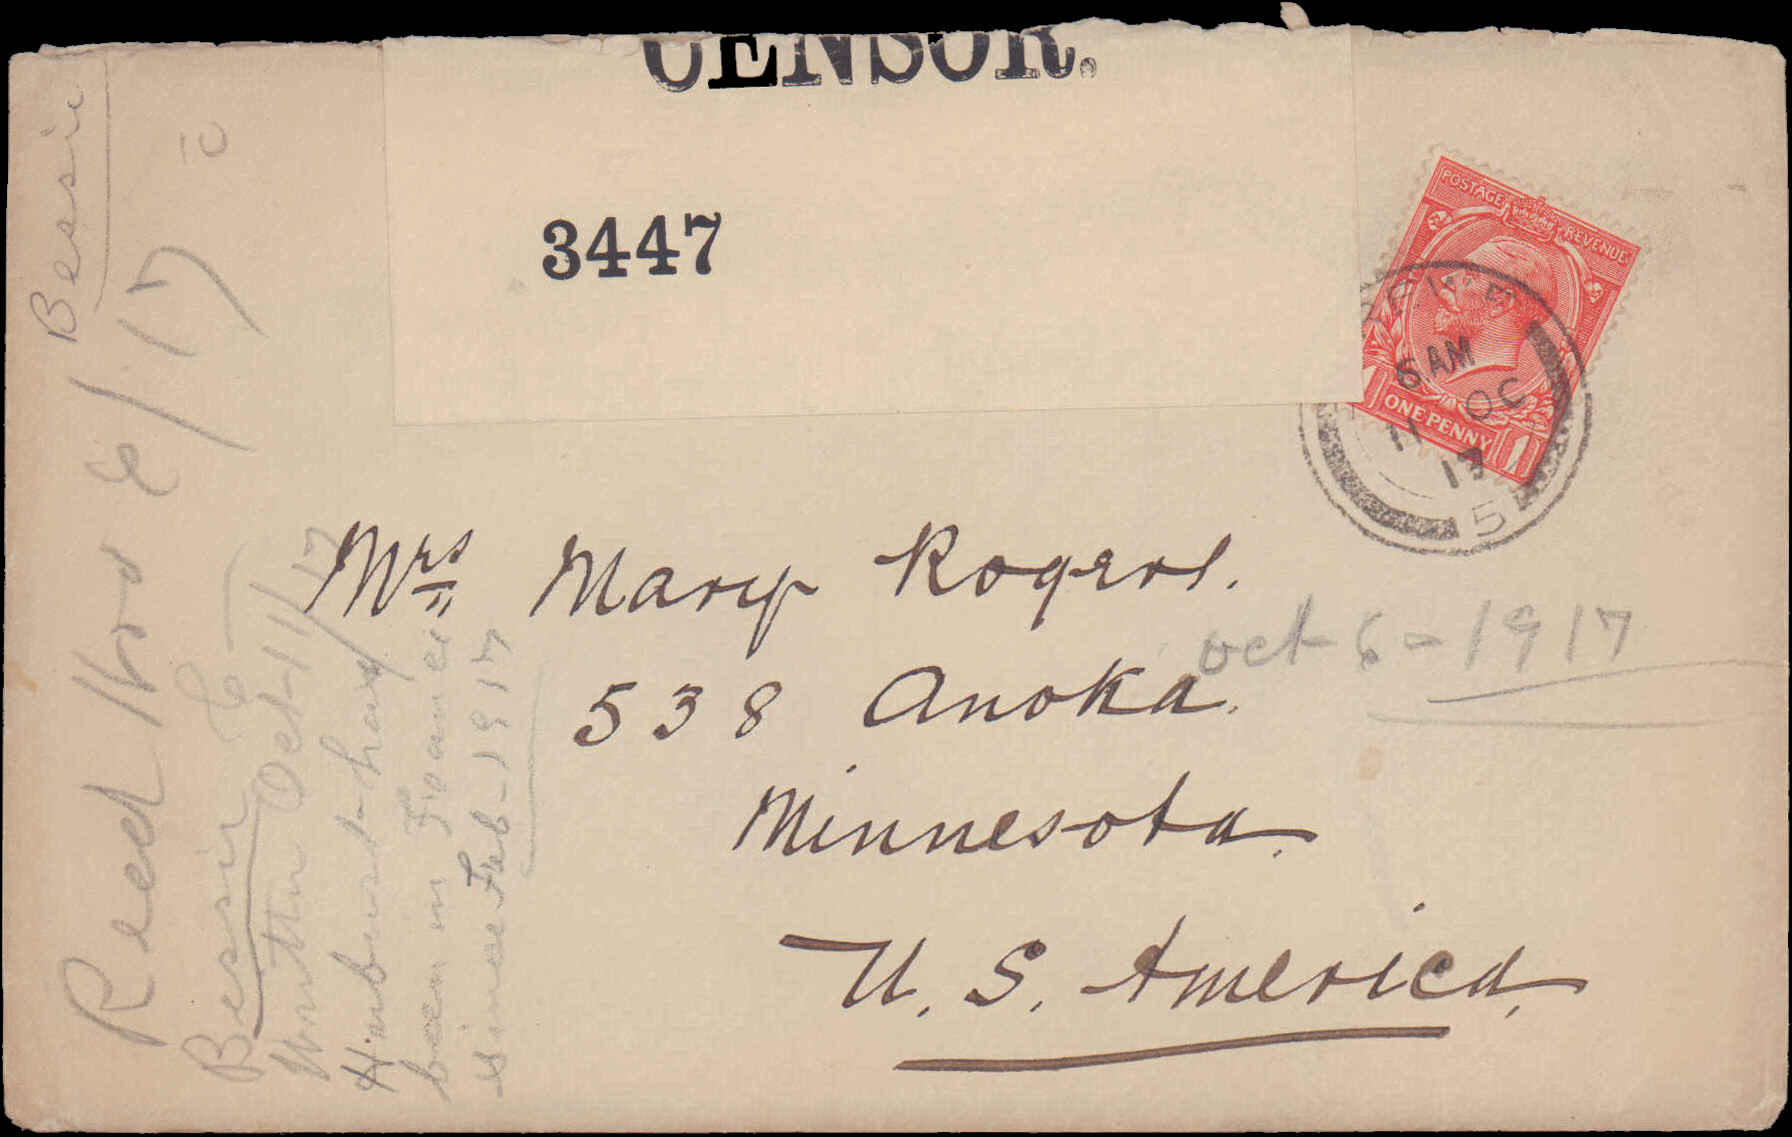 CENSOR.
3447
POSTAGE REVENUE
ONE PENNY
1 1
6 AM
11 OC
17
5
Mrs Mary Rogers.
538 Anoka.
Minnesota.
U. S. America.
Oct 6 - 1917
Bessie
Recd Nov 6/17
Bessie
Written Oct 11/17
Husband has
been in France
since Feb - 1917